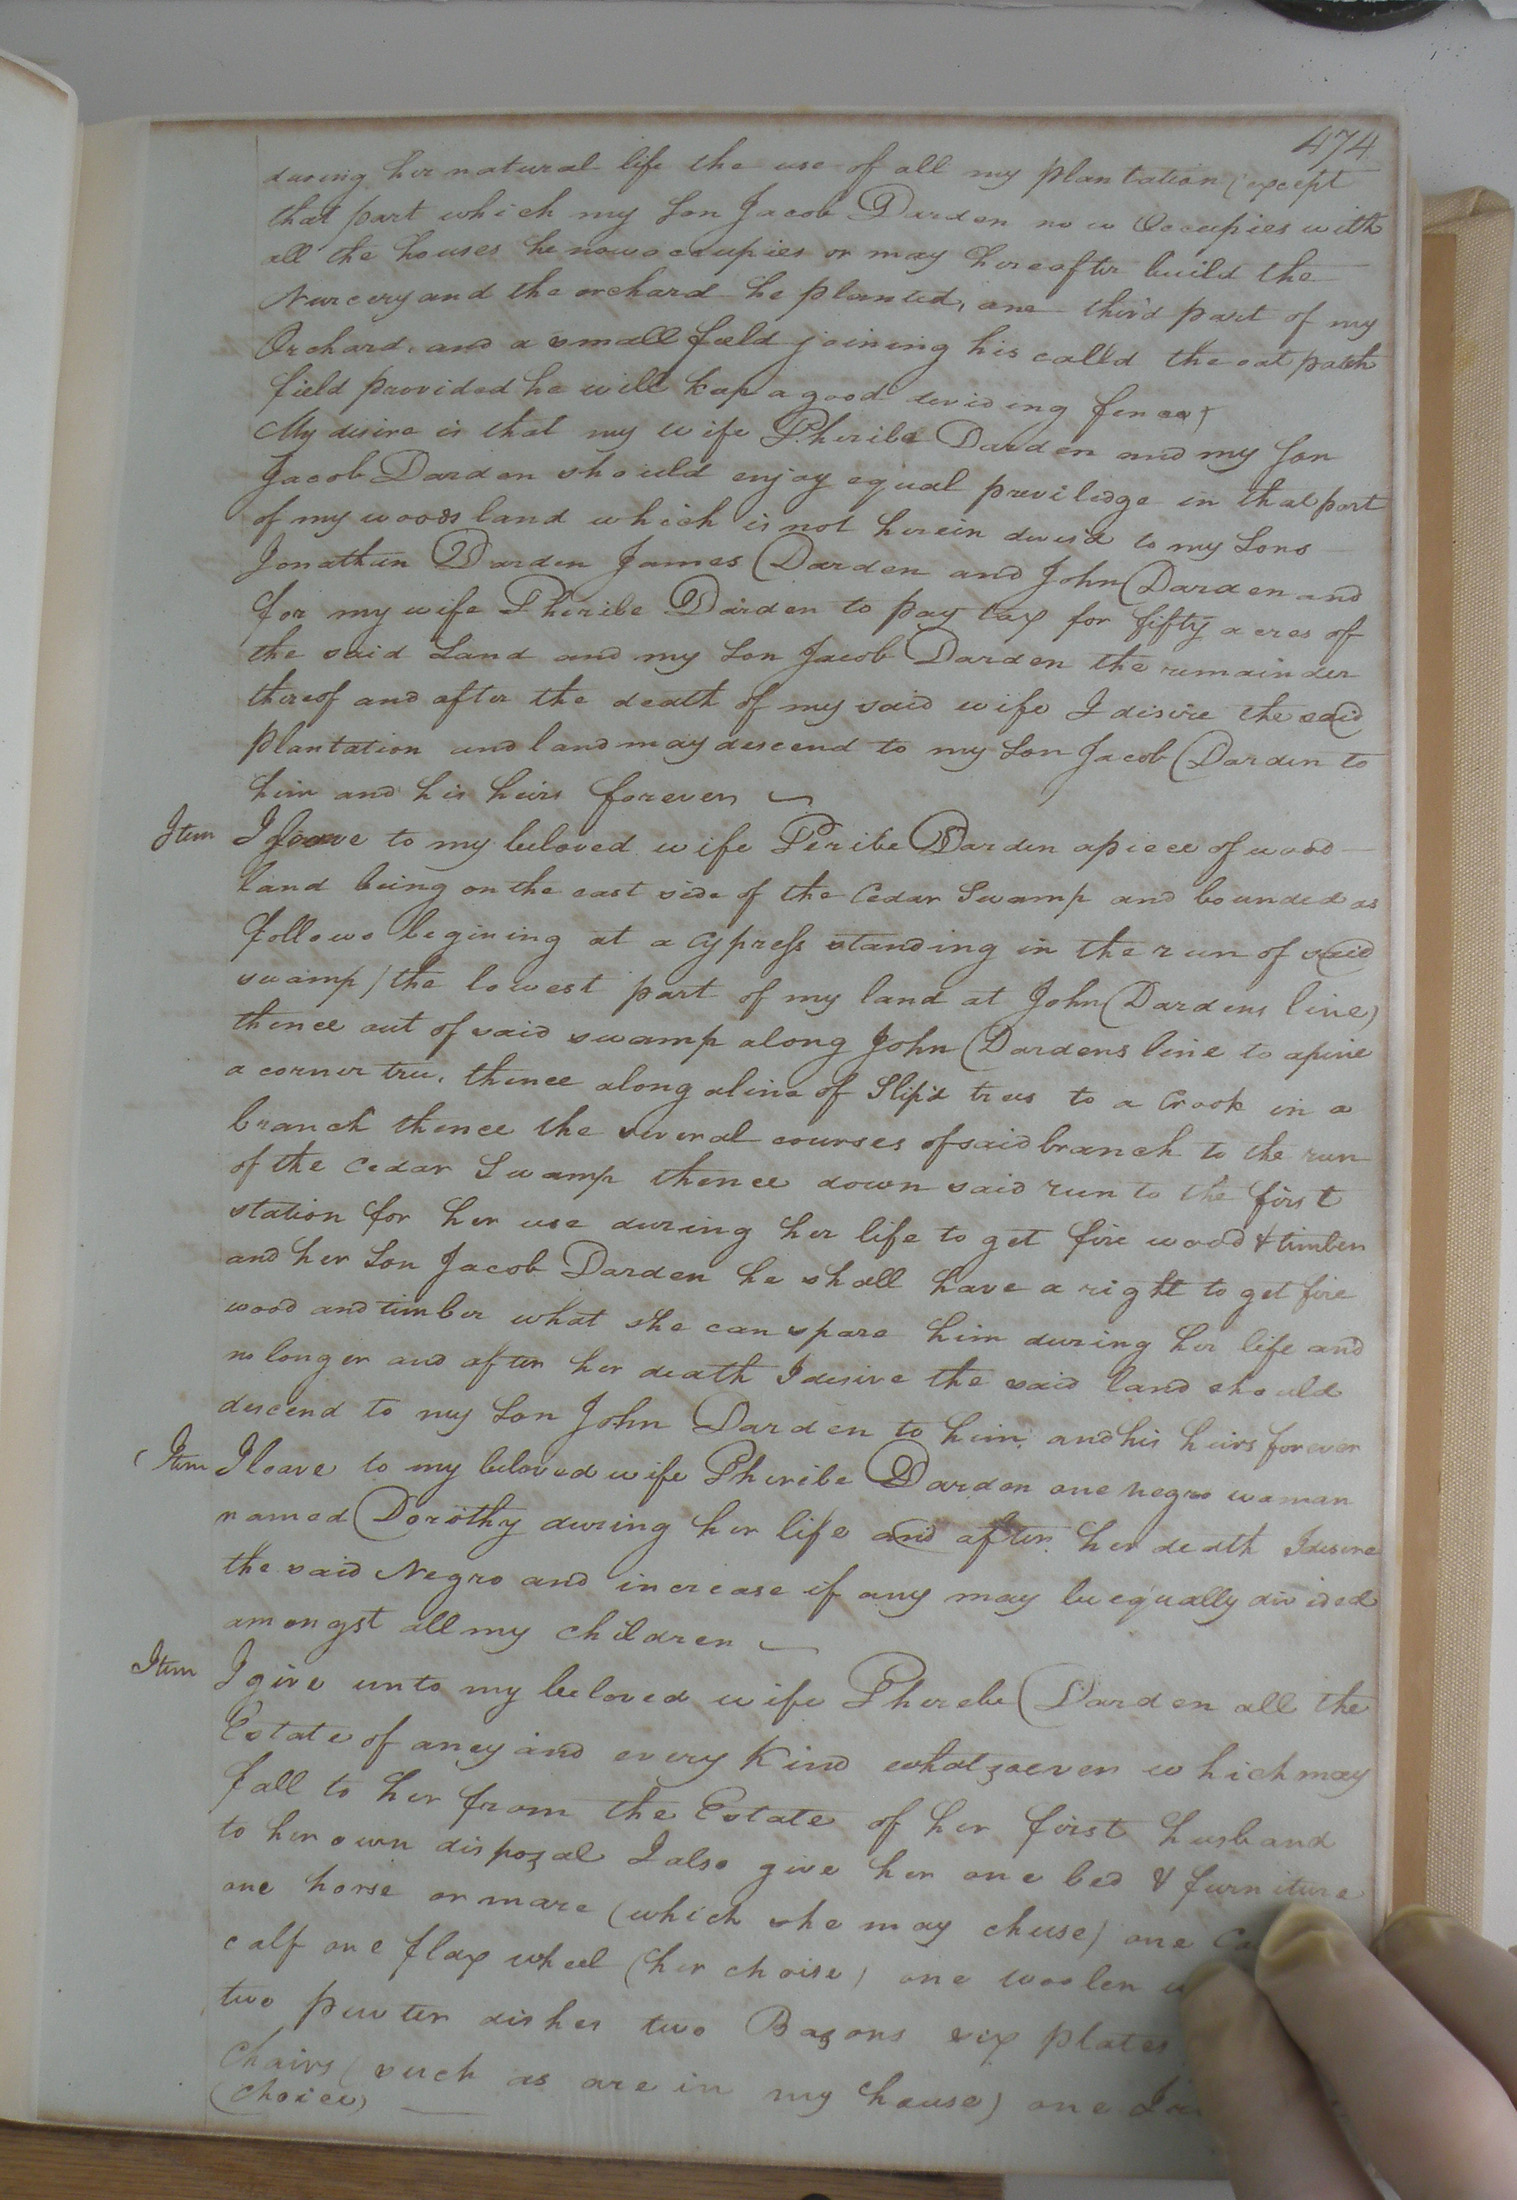 474
during her natural life the use of all my plantation (except
that part which my Son Jacob Darden now Occupies with
all the houses he now occupies or may hereafter build the
Nurcery and the orchard he planted, one third part of my
Orchard, and a small field joining his calld the oat patch
field provided he will keep a good deviding fence)
My desire is that my wife Pheribe Darden and my Son
Jacob Darden should enjoy equal previlidge in that part
of my woods land which is not herein devis'd to my Sons
Jonathan Darden James Darden and John Darden and
for my wife Pheribe Darden to pay tax for fifty acres of
the said Land and my Son Jacob Darden the remainder
thereof and after the death of my said wife I disire the said
plantation and land may descend to my Son Jacob Darden to
him and his heirs forever
Item I leave to my beloved wife Peribe Darden a piece of wood
land being on the east side of the Cedar Swamp and bounded as
follows begining at a Cypress standing in the run of said
swamp (the lowest part of my land at John Dardens line)
thence out of said swamp along John Dardens line to a pine
a corner tree, thence along a line of Slip'd trees to a Crook in a
branch thence the several courses of said branch to the run
of the Cedar Swamp thence down said run to the first
station for her use during her life to get fire wood & timber
and her Son Jacob Darden he shall have a right to get fire
wood and timber what she can spare him during her life and
no longer and after her death I desire the said land should
descend to my Son John Darden to him and his heirs forever
Item I leave to my beloved wife Pheribe Darden one negro woman
named Dorothy during her life and after her death I desire
the said Negro and increase if any may be equally divided
amongst all my children
Item I give unto my beloved wife Pherebe Darden all the
Estate of aney and every Kind whatzoever which may
fall to her from the Estate of her first husband
to her own dispozal I also give her one bed & furniture
one horse or mare (which she may chuse) one
calf one flax wheel (her choise) one woolen
two pewter dishes two Bazons six plates
Chairs (such as are in my house) one
(Choice)